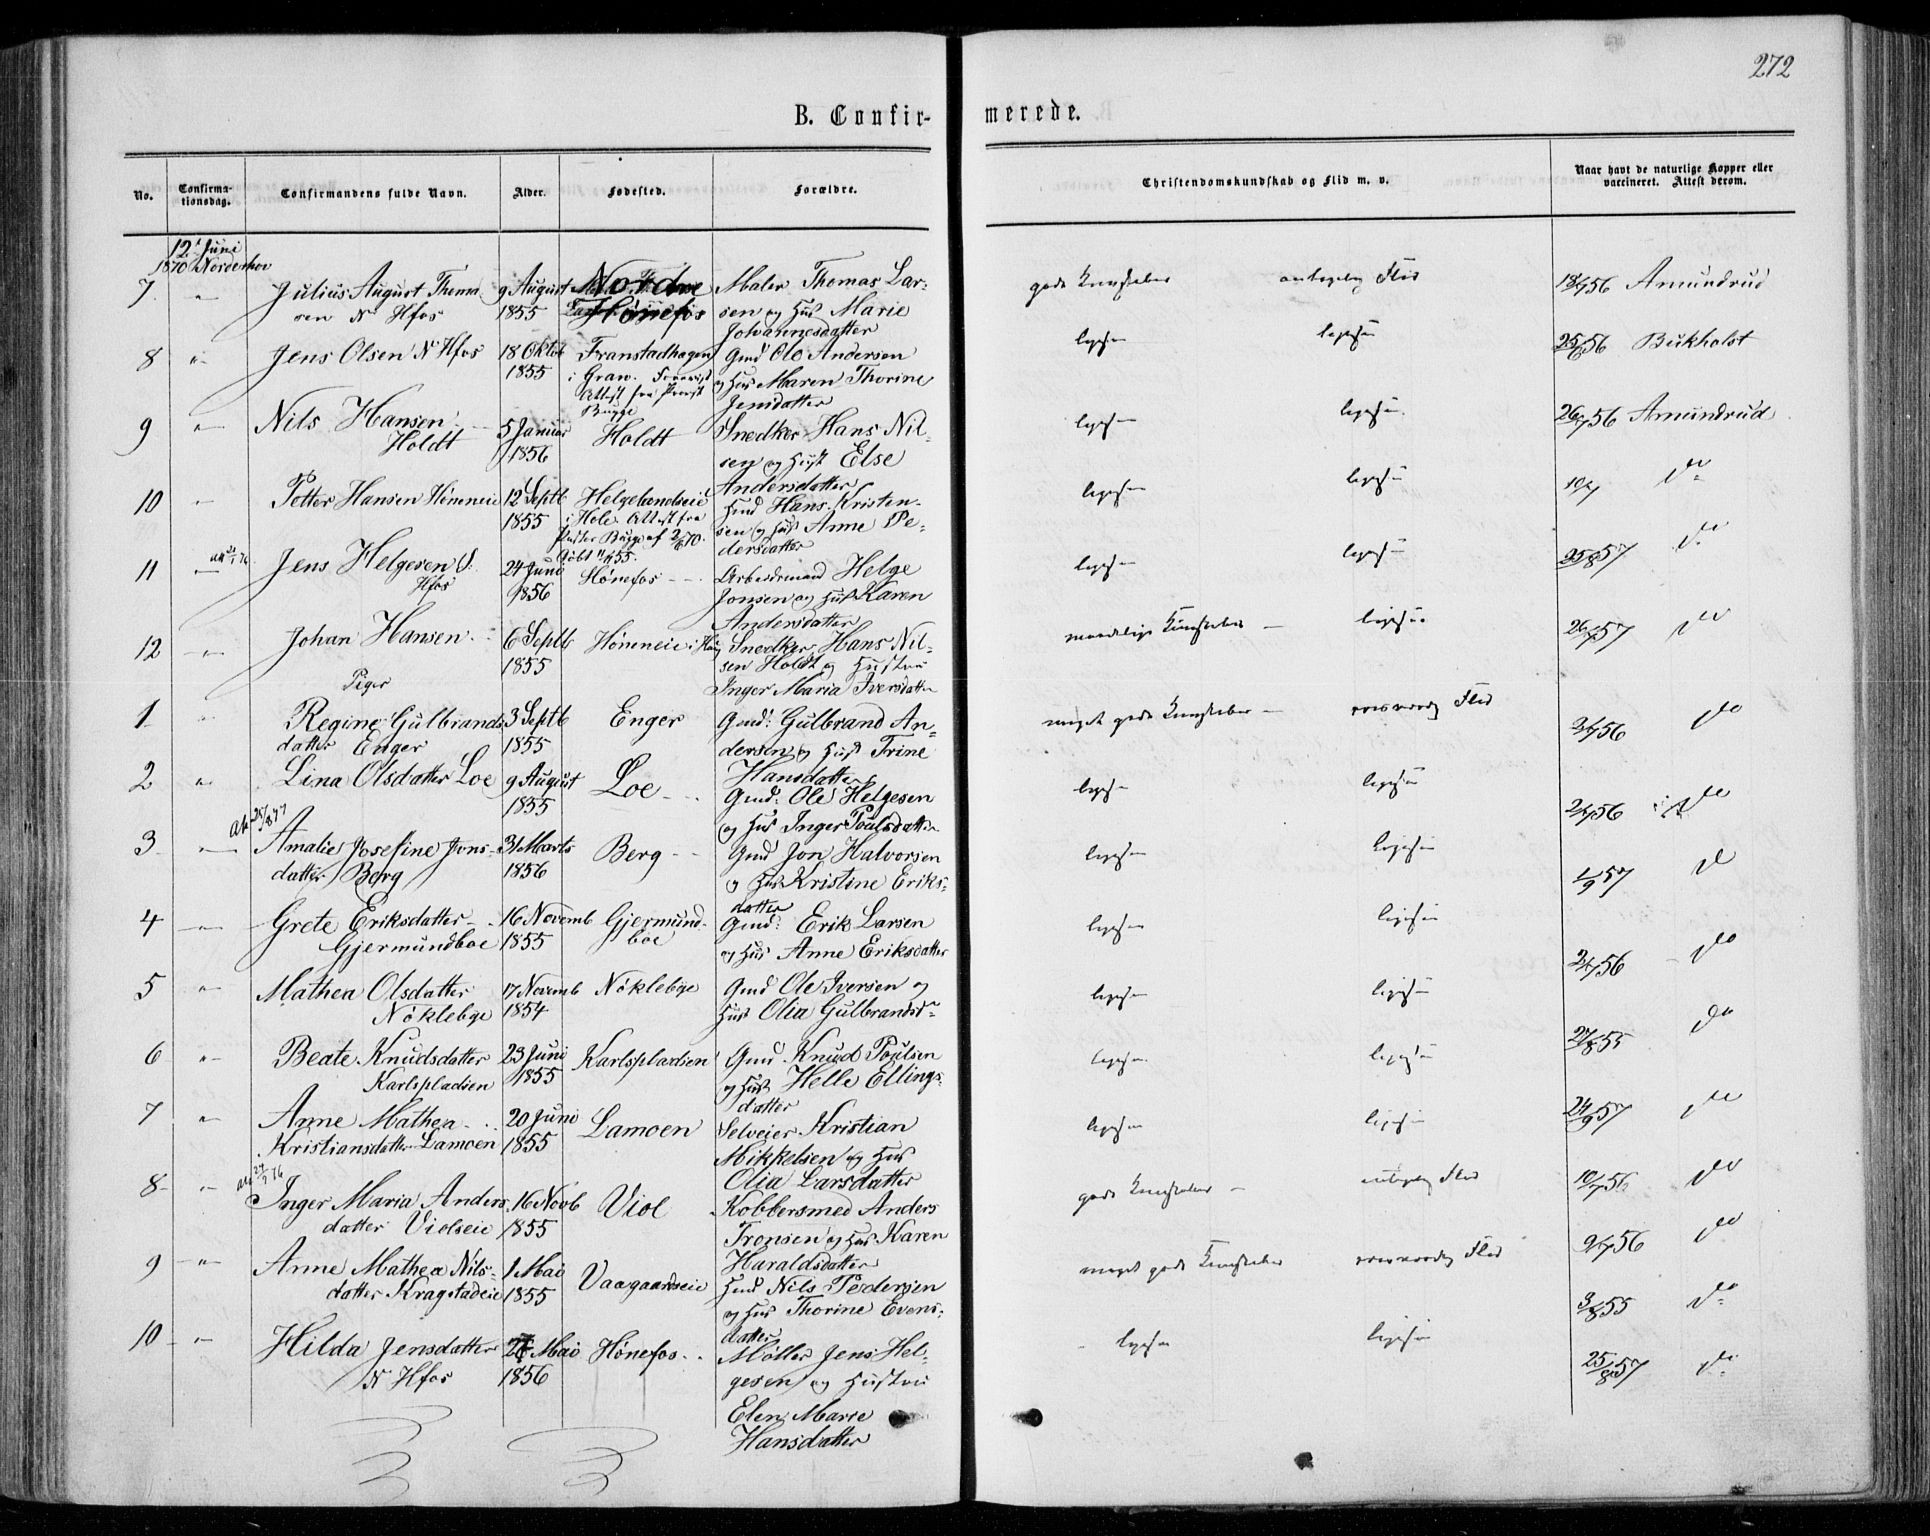 272
B. Confirmerede.
No. Confirmationsdag. Confirmandens fulde Navn. Alder. Fødested. Forældre. Christendomskundskab og Flid m. v. Naar havt de naturlige Kopper eller vaccineret. Attest derom.
12 Juni
1870 Norderhov
7 " Julius August Thomasen N Hfos 9 August 1855 Nordre Hønefos Maler Thomas Larsen og Hus Marie Johannesdatter gode Kundskaber antagelig Flid 18/7 56 Amundrud
8 " Jens Olsen N Hfos 18 Oktob 1855 Franstadhagen i Gran. Attest fra Provst Bugge Gmd Ole Andersen og Hus Maren Thorine Jensdatter ligesaa ligesaa 56 Bukholst
9 " Nils Hansen Holdt 5 Januar 1856 Holdt Snedker Hans Nilsen og Hust Else Andersdatter ligesaa ligesaa 26/7 56 Amundrud
10 " Petter Hansen Hønneneie 12 Septb 1855 Helgelandseie i Hole Attest fra Pastor Bugge af 70. Døbt 55. Hmd Hans Kristensen og Hus Anne Pedersdatter ligesaa ligesaa do
11 " Jens Helgesen S. Hfos 24 Juni 1856 Hønefos Arbeidsmand Helge Jonsen og Hus Karen Andersdatter ligesaa ligesaa 25/8 57 do
12 " Johan Hansen 6 Septb 1855 Hønneneie i Haug Snedker Hans Nilsen Holdt og Hustru Inger Maria Iversdatter maadelige Kundskaber ligesaa 26/7 57 do
Piger
1 " Regine Gulbrandsdatter Enger 3 Septb 1855 Enger Gmd: Gulbrand Andersen og Hust Trine Hansdatter meget gode Kundskaber roesværdig Flid 2/7 56 do
2 " Lina Olsdatter Loe 9 August 1855 Loe Gmd: Ole Helgesen og Hus Inger Poulsdatter ligesaa ligesaa 2/7 56 do
3 " Amalie Josefine Jonsdatter Berg 31 Marts 1856 Berg Gmd Jon Halvorsen og Hus Kristine Eriksdatter ligesaa ligesaa 1/9 57 do
4 " Grete Eriksdatter Gjermundboe 16 Novemb 1855 Gjermundboe Gmd: Erik Larsen og Hus Anne Eriksdatter ligesaa ligesaa 2/7 56 do
5 " Mathea Olsdatter Nøklebye 17 Novemb 1854 Nøklebye Gmd Ole Iversen og Hus Olia Gulbrandsdr ligesaa ligesaa 27/8 55 do
6 " Beate Knudsdatter Karlspladsen 23 Juni 1855 Karlspladsen Gmd. Knud Poulsen og Hust Helle Ellingsdatter ligesaa ligesaa 24/9 57 do
7 " Anne Mathea Kristiansdatter Lamoen 20 Juni 1855 Lamoen Selveier Kristian Mikkelsen og Hus Olia Larsdatter ligesaa ligesaa 10/7 56 do
8 " Inger Maria Andersdatter Violseie 16 Novb 1855 Viol Kobbersmed Anders Tronsen og Hus Karen Haraldsdatter gode Kundskaber antagelig Flid 9/7 56 do
9 " Anne Mathea Nilsdatter Kragstadeie 1 Mai 1855 Vaagaardseie Hmd Nils Pedersen og Hus Thorine Evensdatter meget gode Kundskaber roesværdig Flid 3/8 55 do
10 " Hilda Jensdatter N Hfos Mai 1856 Hønefos Møller Jens Helgesen og Hustru Elen Marie Hansdatter ligesaa ligesaa 25/8 57 do